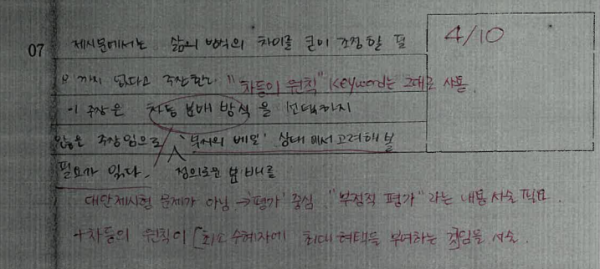 4/10
07 제시문에서는 삶의 방식의 차이를 굳이 조정할 필
요까지 없다고 주장한다. "차등의 원칙" keyword는 그대로 사용.
이 주장은 차등 분배 방식을 반대하지
않은 주장임으로 '무지의 베일' 상태에서 고려해 볼
필요가 있다. 정의로운 분배를
대안제시형 문제가 아님 → '평가' 중심. "부정적 평가"라는 내용 서술 필요.
+차등의 원칙이 [최소 수혜자에 최대 혜택을 부여하는 것]임을 서술.